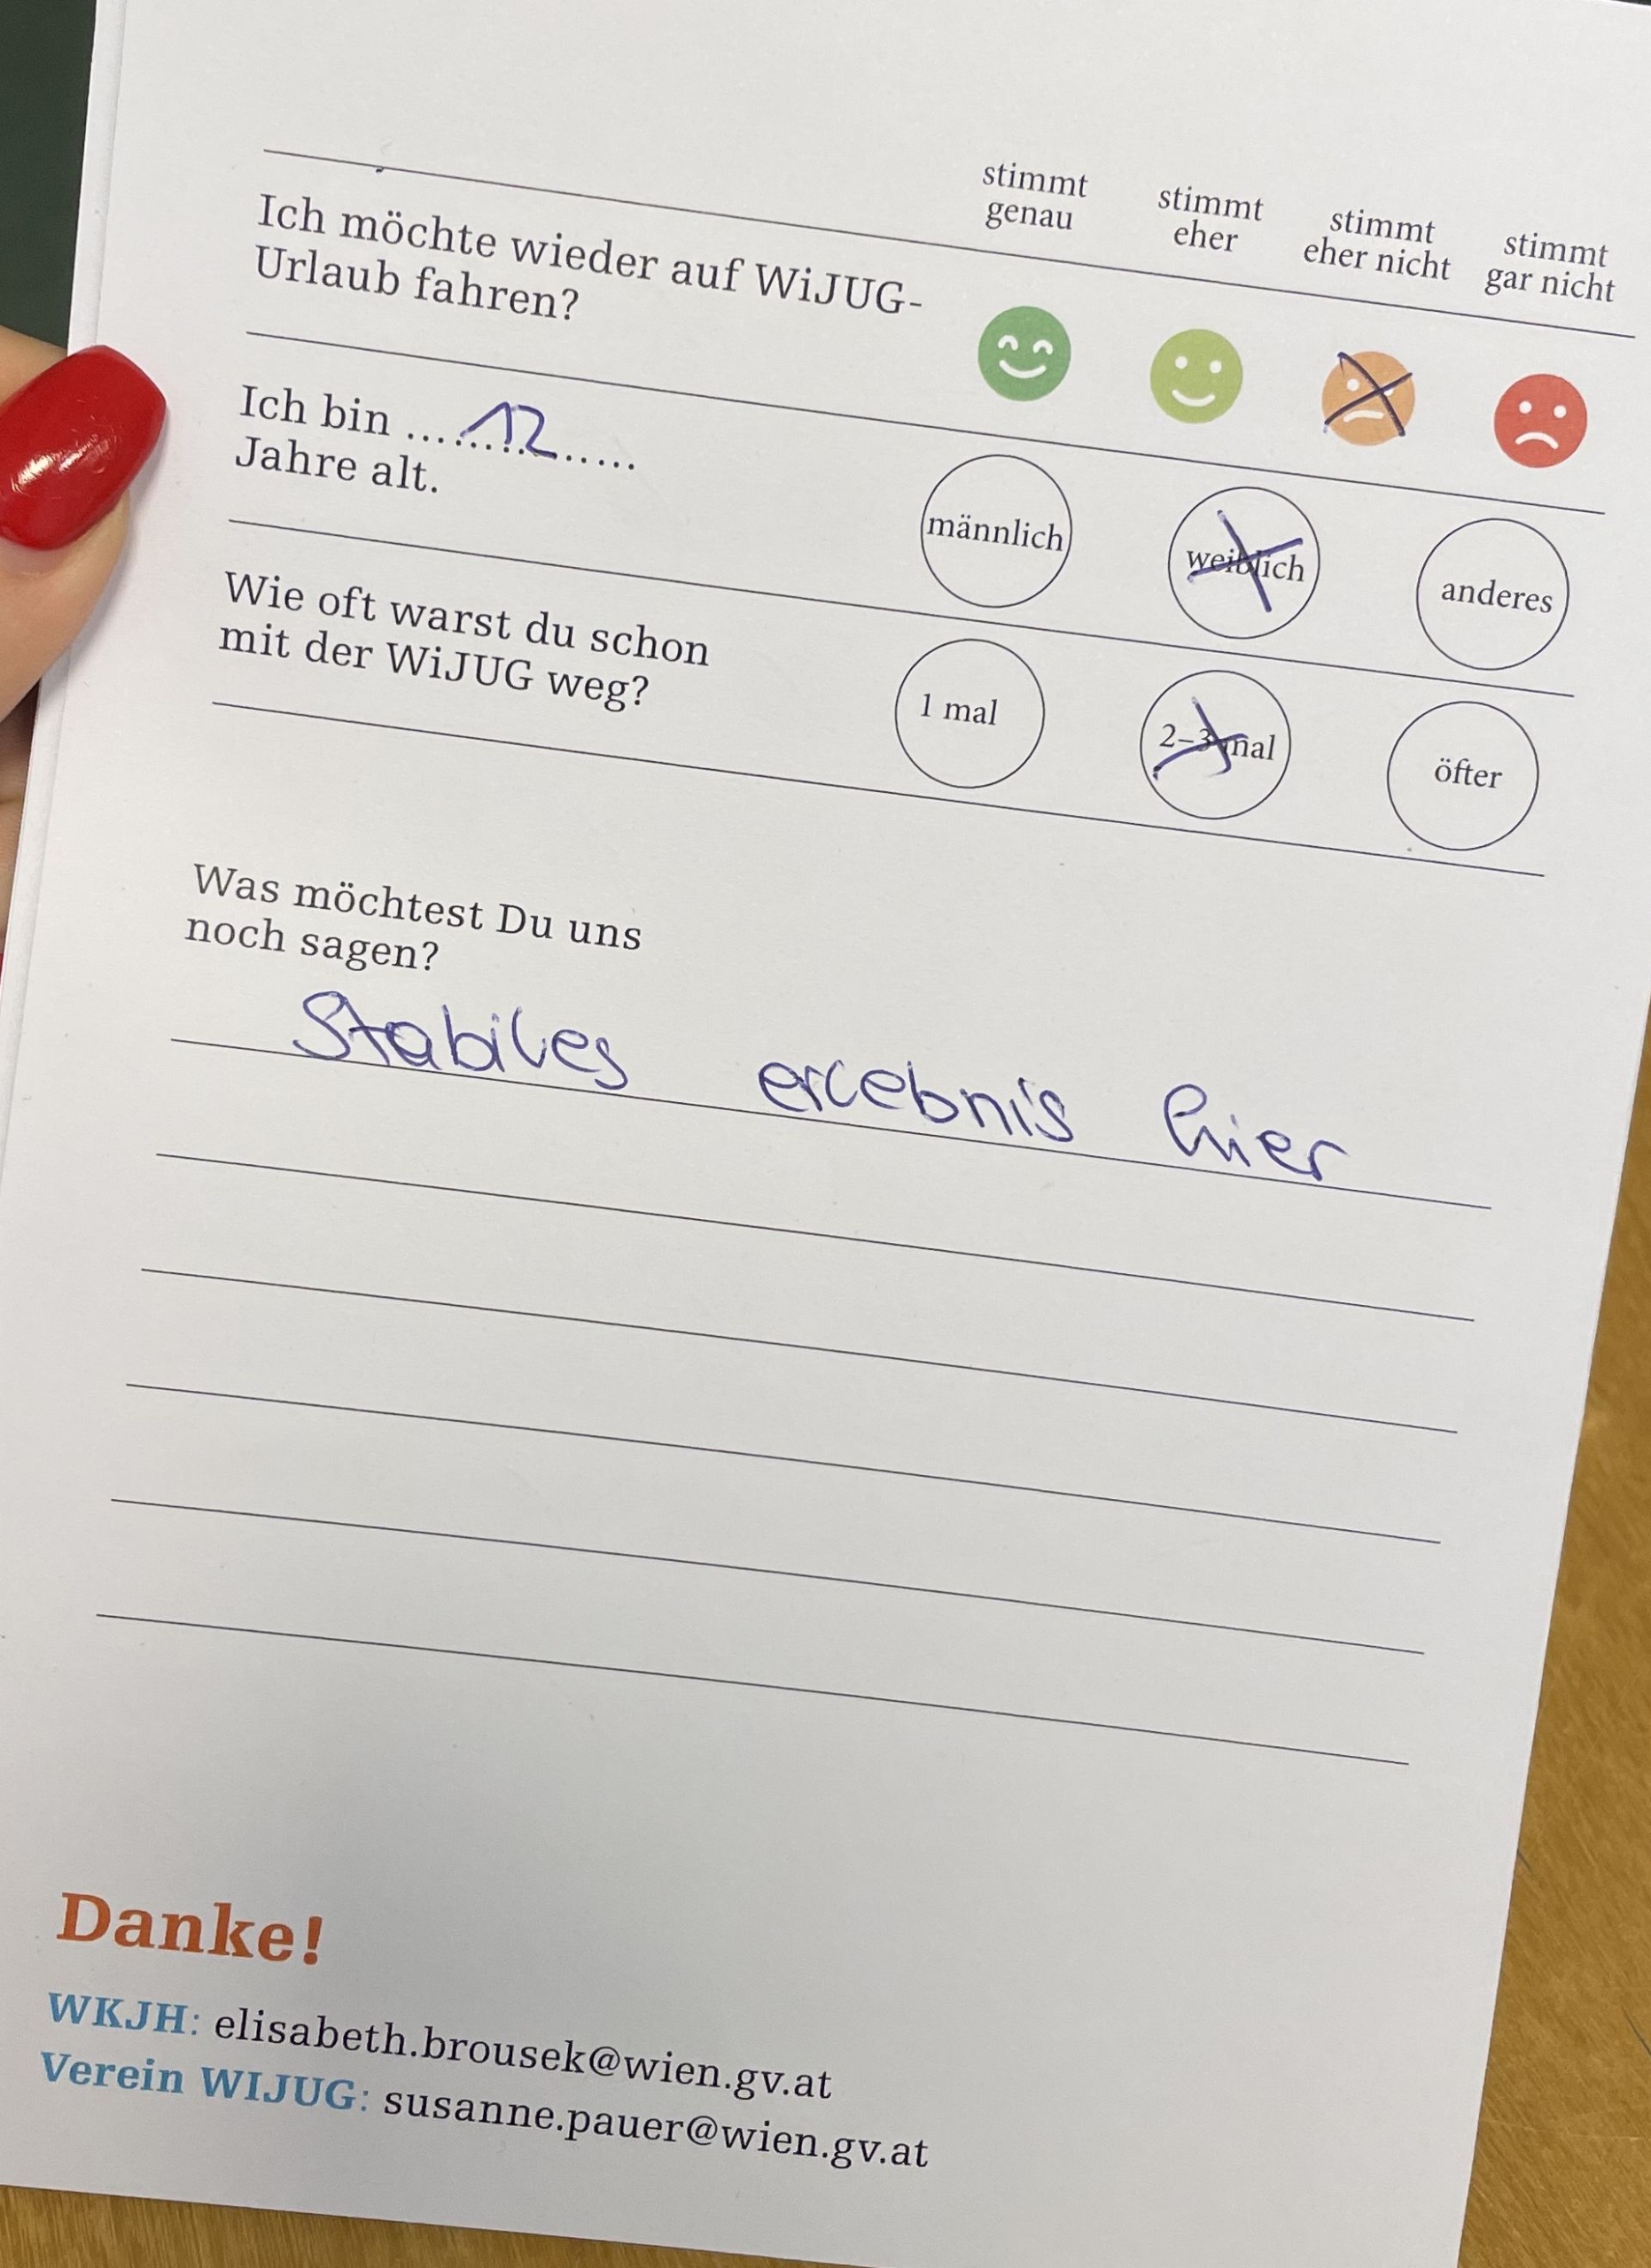 stimmt genau stimmt eher stimmt eher nicht stimmt gar nicht
Ich möchte wieder auf WiJUG-
Urlaub fahren?
Ich bin ...12...
Jahre alt.
männlich weiblich anderes
Wie oft warst du schon
mit der WiJUG weg?
1 mal 2–3 mal öfter
Was möchtest Du uns
noch sagen?
Stabiles erlebnis hier
Danke!
WKJH: elisabeth.brousek@wien.gv.at
Verein WIJUG: susanne.pauer@wien.gv.at